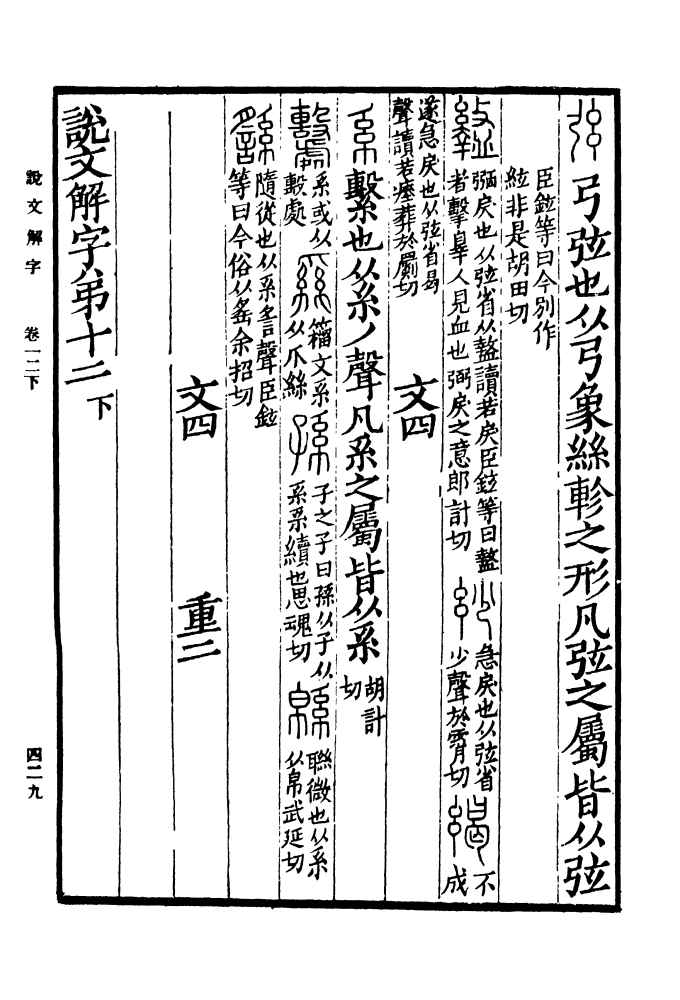 弦 弓弦也从弓象絲軫之形凡弦之屬皆从弦
臣鉉等曰今別作
絃非是胡田切
盭 弻戾也从弦省从盩讀若戾臣鉉等曰盩
者擊辠人見血也弻戾之意郎計切
玅 急戾也从弦省
少聲於霄切
不
成
遂急戾也从弦省曷
聲讀若瘞葬於罽切
文四
系 繫也从糸丿聲凡系之屬皆从系
胡計
切
系或从
毄處
籒文系
从爪絲
孫 子之子曰孫从子从
系系續也思魂切
緜 聯微也从系
从帛武延切
繇 隨從也从系䚻聲臣鉉
等曰今俗从䍃余招切
文四 重二
說文解字弟十二 下
說文解字 卷一二下
四二九